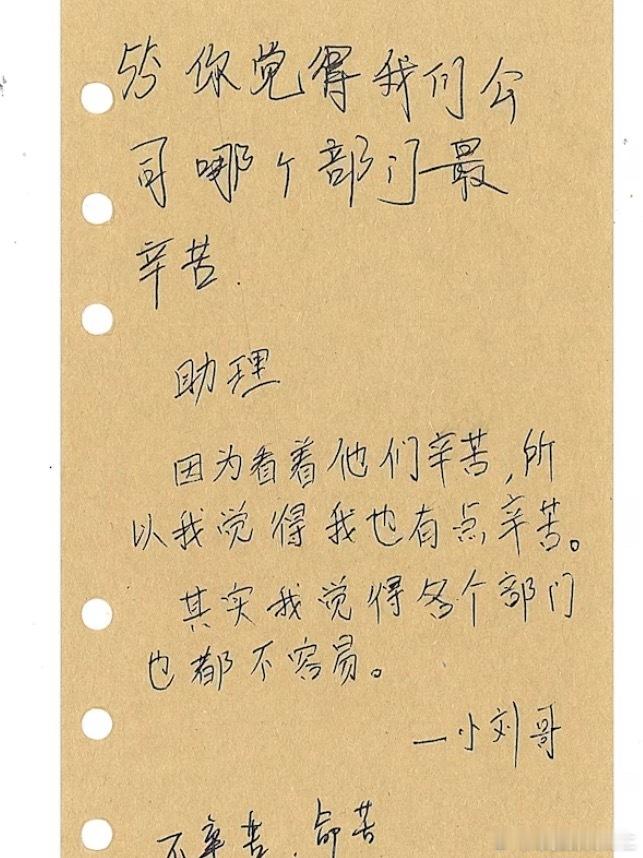 55 你觉得我们公
司哪个部门最
辛苦.
助理
因为看着他们辛苦,所
以我觉得我也有点辛苦。
其实我觉得各个部门
也都不容易。
—小刘哥
不辛苦.命苦